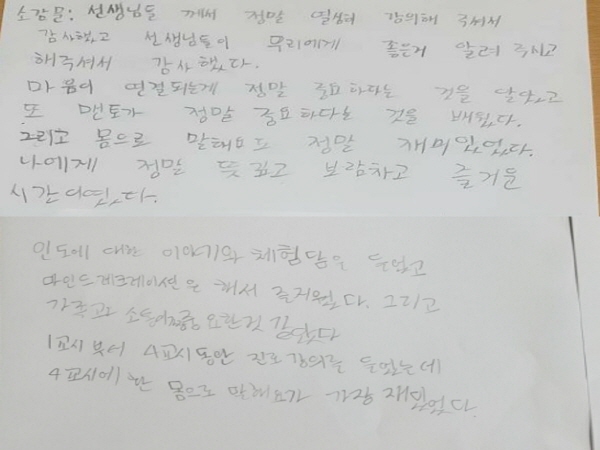 소감문: 선생님들 께서 정말 열심히 강의해 주셔서
감사했고 선생님들이 우리에게 좋은거 알려 주시고
해주셔서 감사했다.
마음이 연결되는게 정말 중요하다는 것을 알았고
또 멘토가 정말 중요하다는 것을 배웠다.
그리고 몸으로 말해요도 정말 재미있었다.
나에게 정말 뜻깊고 보람차고 즐거운
시간이였다.
인도에 대한 이야기와 체험담을 들었고
마인드레크레이션을 해서 즐거웠다. 그리고
가족과 소통이 중요한것 같았다
1교시 부터 4교시 동안 진로강의를 들었는데
4교시에 한 몸으로 말해요가 가장 재밌었다.